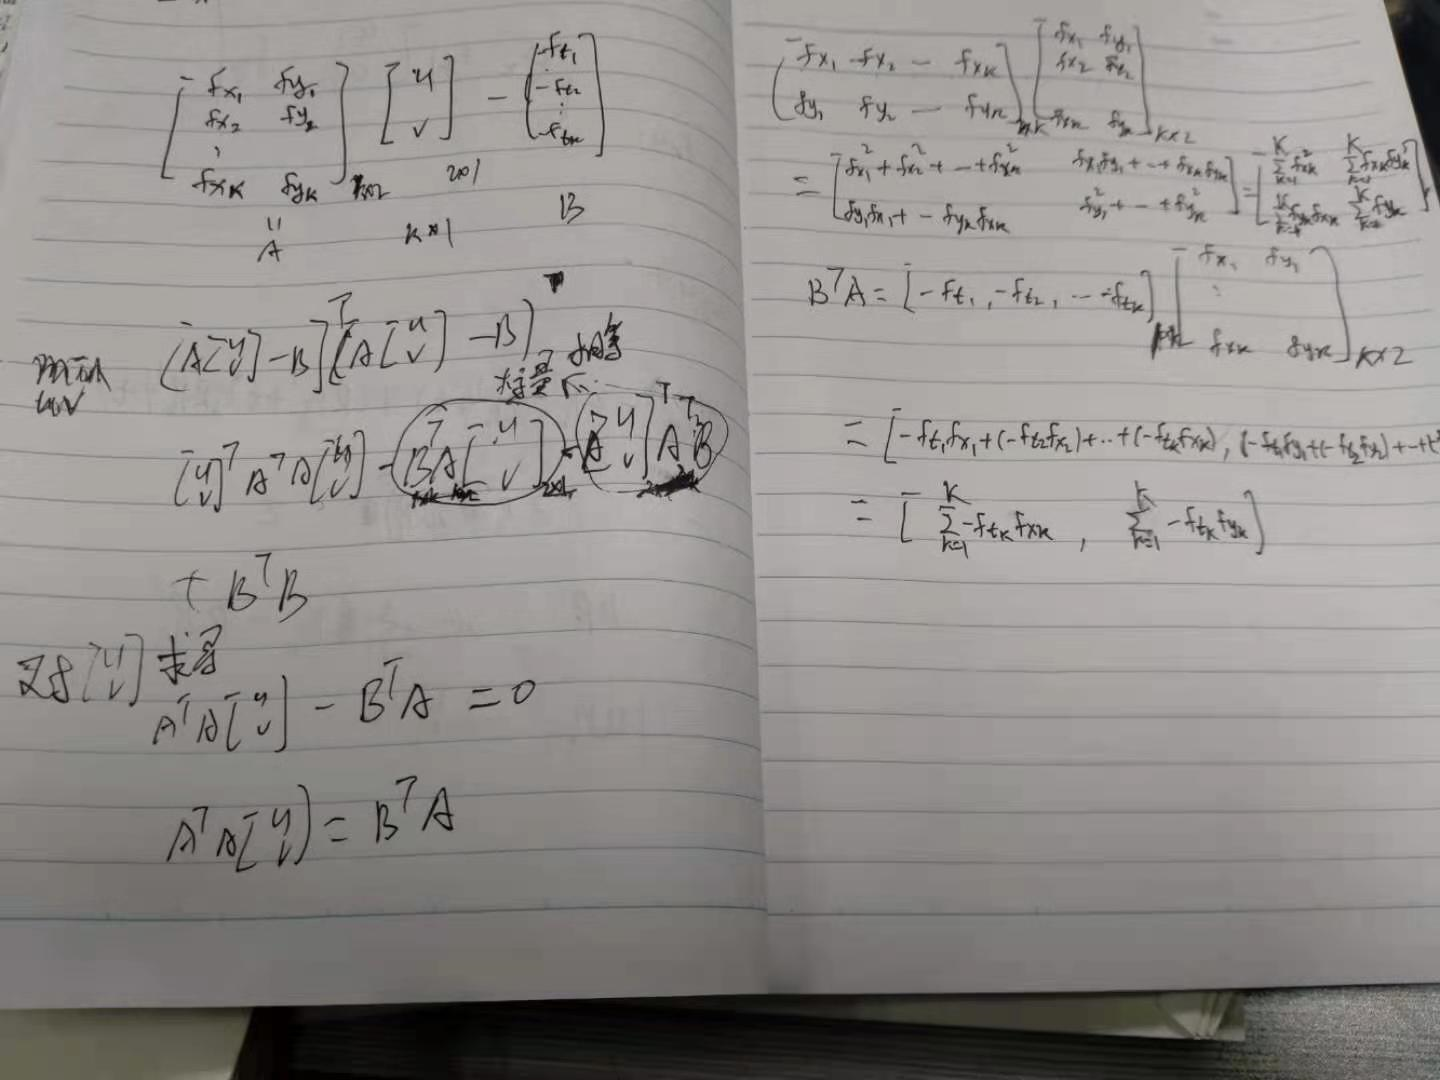 [fx₁ fy₁
fx₂ fy₂
⋮
fxₖ fyₖ]ₖₓ₂ [u
v] - [-ft₁
-ft₂
⋮
-ftₖ]
2×1
A
k×1
B
min
u,v
[A[u v] - B]ᵀ[A[u v] - B]
标量 相等
[u v]ᵀAᵀA[u v] - BᵀA[u v] - [u v]ᵀAᵀB
+ BᵀB
对[u v] 求导
AᵀA[u v] - BᵀA = 0
AᵀA[u v] = BᵀA
[fx₁ fx₂ - fxₖ
fy₁ fy₂ - fyₖ] [fx₁ fy₁
fx₂ fy₂
fxₖ fyₖ]ₖₓ₂
= [fx₁² + fx₂² + … + fxₖ² fx₁fy₁ + … + fxₖfyₖ
fy₁fx₁ + … fyₖfxₖ fy₁² + … + fyₖ²] = [∑ₖ₌₁ᴷ fxₖ² ∑ₖ₌₁ᴷ fxₖfyₖ
∑ₖ₌₁ᴷ fyₖfxₖ ∑ₖ₌₁ᴷ fyₖ]
BᵀA = [-ft₁, -ft₂, … -ftₖ] [fx₁ fy₁
⋮
fxₖ fyₖ]ₖₓ₂
= [-ft₁fx₁ + (-ft₂fx₂) + … + (-ftₖfxₖ), (-ft₁fy₁ + (-ft₂fy₂) + … + (-f
= [∑ₖ₌₁ᴷ -ftₖfxₖ, ∑ₖ₌₁ᴷ -ftₖfyₖ]